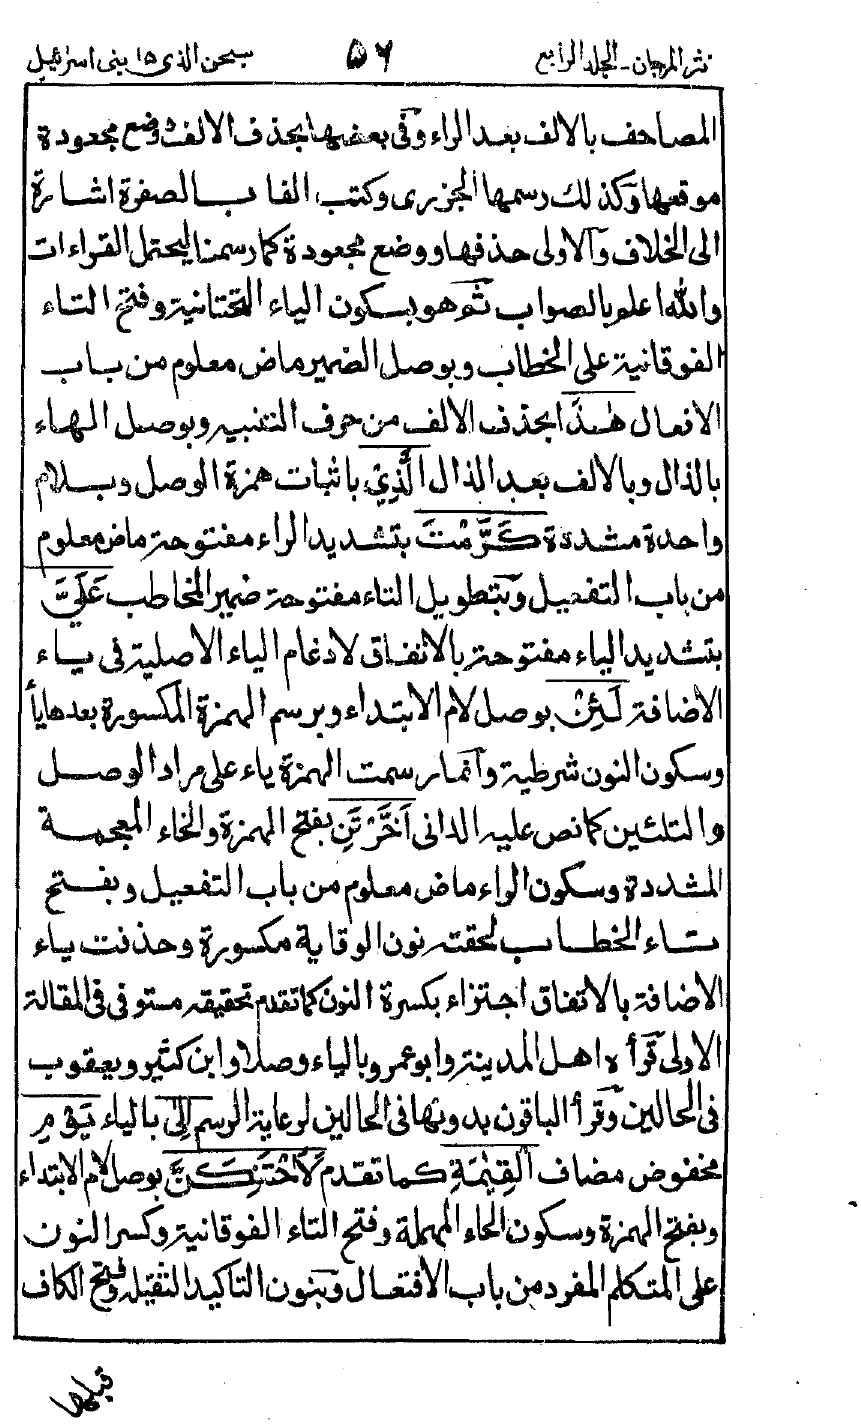 نثر المرجان - الجلد الرابع ٥٦ سبحن الذى ١٥ بنى اسرائيل
المصاحف بالالف بعد الراء وفى بعضها بحذف الالف ووضع مجعودة
موقعها وكذلك رسمها الجزرى وكتب الفا بالصفرة اشارة
الى الخلاف والاولى حذفها ووضع مجعودة كما رسمنا ليحتمل القراءات
والله اعلم بالصواب ثم هو بسكون الياء التحتانية وفتح التاء
الفوقانية على الخطاب وبوصل الضمير ماض معلوم من باب
الافعال هٰذَا بحذف الالف من حرف التنبيه وبوصل الهاء
بالذال وبالالف بعد الذال الَّذِيْ باثبات همزة الوصل وبلام
واحدة مشددة كَرَّمْتَ بتشديد الراء مفتوحة ماض معلوم
من باب التفعيل وبتطويل التاء مفتوحة ضمير المخاطب عَلَيَّ
بتشديد الياء مفتوحة بالاتفاق لادغام الياء الاصلية فى ياء
الاضافة لَئِنْ بوصل لام الابتداء وبرسم الهمزة المكسورة بعدها يأ
وسكون النون شرطية وانما رسمت الهمزة ياء على مراد الوصل
والتلئين كما نص عليه الدانى اَخَّرْتَنِ بفتح الهمزة والخاء المعجمة
المشددة وسكون الراء ماض معلوم من باب التفعيل وبفتح
تاء الخطاب لحقته نون الوقاية مكسورة وحذفت ياء
الاضافة بالاتفاق اجتزاء بكسرة النون كما تقدم تحقيقه مستوفى فى المقالة
الاولى قرأه اهل المدينة وابو عمرو بالياء وصلا وابن كثير ويعقوب
فى الحالين وقرأ الباقون بدونها فى الحالين لرعاية الرسم اِلٰى بالياء يَوْمِ
مخفوض مضاف الْقِيٰمَةِ كما تقدم لَاَحْتَنِكَنَّ بوصل لام الابتداء
وبفتح الهمزة وسكون الحاء المهملة وفتح التاء الفوقانية وكسر النون
على المتكلم المفرد من باب الافتعال وبنون التاكيد الثقيلة وفتح الكاف
قبلها